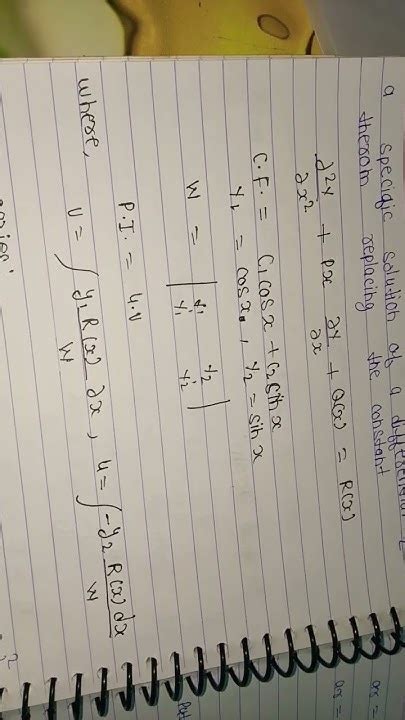 a specific solution of a differential
therom replacing the constant
∂²y/∂x² + Px ∂y/∂x + Q(x) = R(x)
C.F. = C₁cosx + C₂sinx
y₁ = cosx, y₂ = sinx
W = | y₁ y₂ |
| y₁' y₂' |
P.I. = u.v
where,
v = ∫ y₁R(x)/W ∂x, u = ∫ -y₂R(x)dx/W